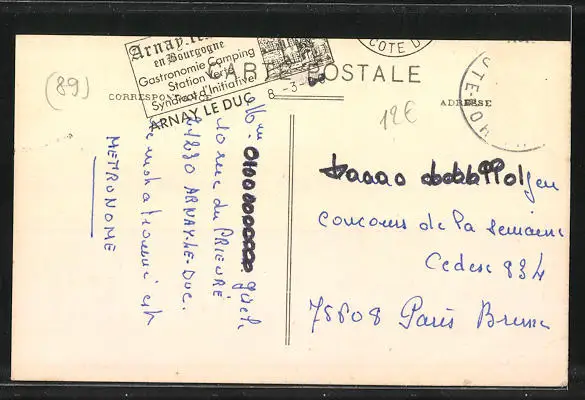 Arnay-le-
en Bourgogne
Gastronomie Camping
Station Verte
Syndicat d'Initiative
ARNAY LE DUC
8 -3-
COTE D
CARTE POSTALE
CORRESPONDANCE
ADRESSE
(89)
12€
10 rue du PRIEURÉ
21230 ARNAY-LE-DUC.
le mot à trouver est
METRONOME
Jeu
concours de la semaine
Cedex 834
75808 Paris Brune